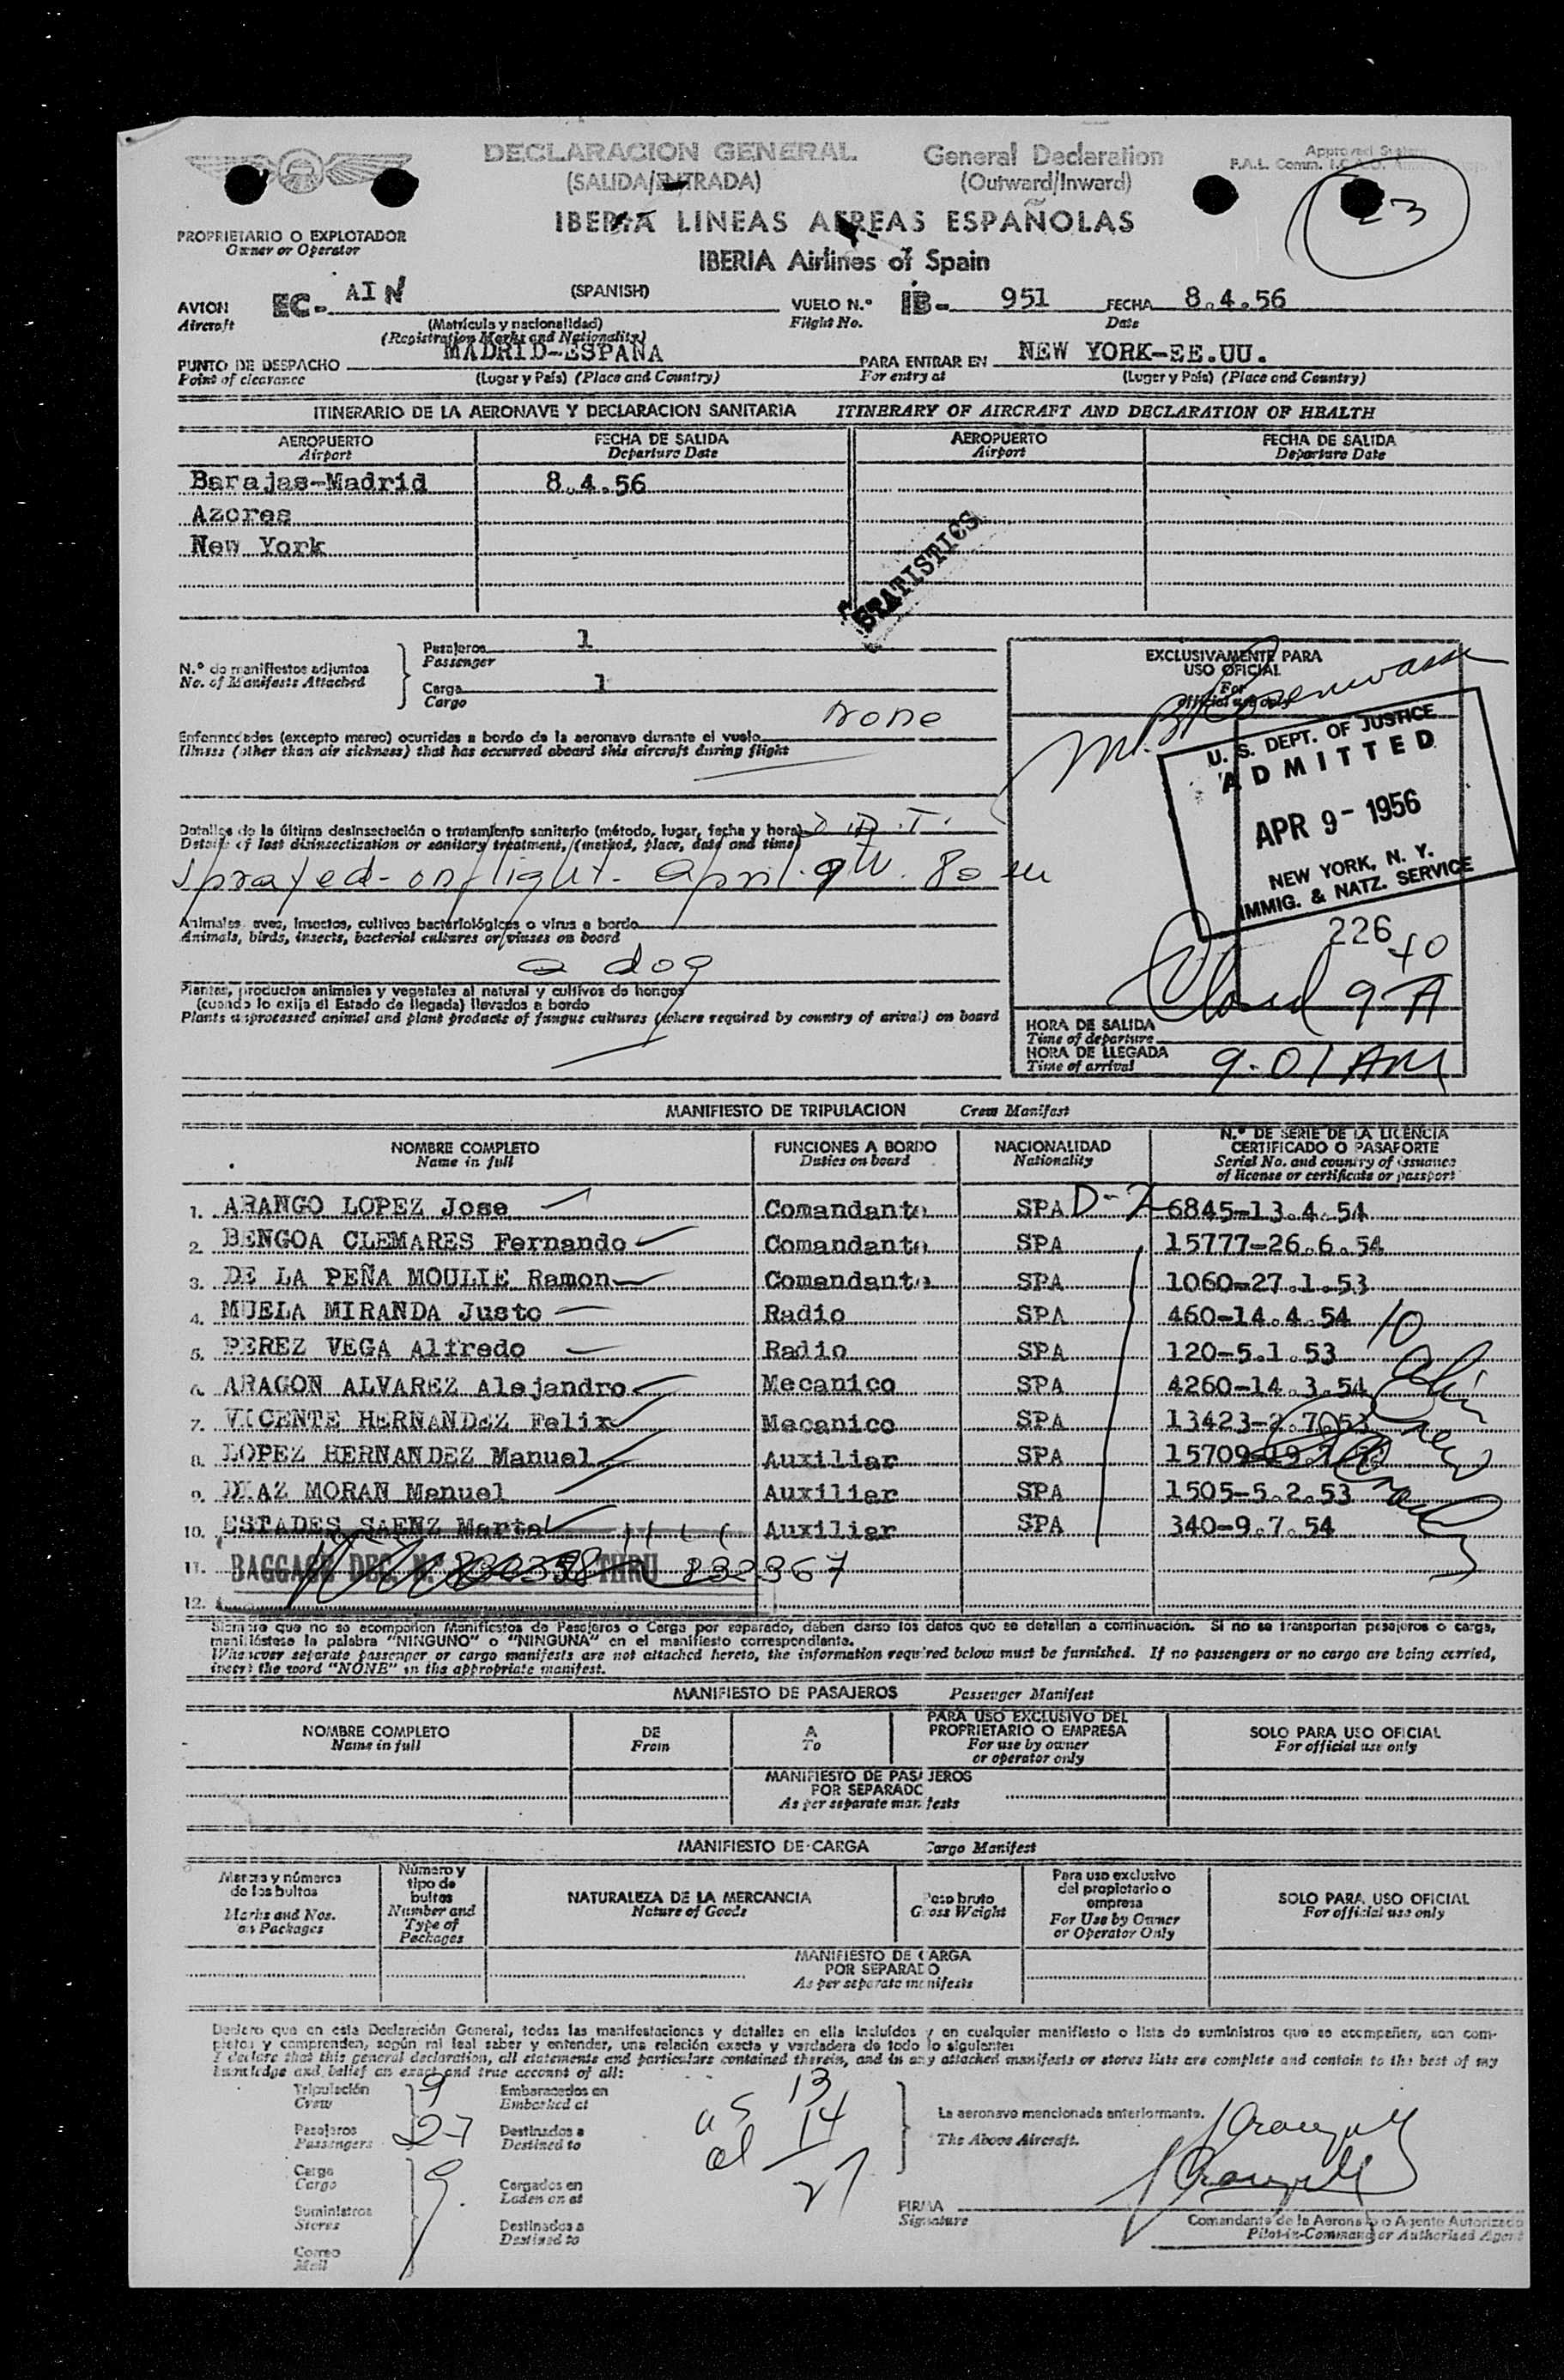 DECLARACION GENERAL General Declaration
(SALIDA/ENTRADA) (Outward/Inward)
Approved System
F.A.L. Comm. I.C.A.O.
23
IBERIA LINEAS AEREAS ESPAÑOLAS
IBERIA Airlines of Spain
PROPRIETARIO O EXPLOTADOR
Owner or Operator
AVION EC- AIN (SPANISH) VUELO N.º IB- 951 FECHA 8.4.56
Aircraft (Matrícula y nacionalidad) Flight No. Date
(Registration Marks and Nationality)
PUNTO DE DESPACHO MADRID-ESPAÑA PARA ENTRAR EN NEW YORK-EE.UU.
Point of clearance (Lugar y País) (Place and Country) For entry at (Lugar y País) (Place and Country)
ITINERARIO DE LA AERONAVE Y DECLARACION SANITARIA ITINERARY OF AIRCRAFT AND DECLARATION OF HEALTH
AEROPUERTO FECHA DE SALIDA AEROPUERTO FECHA DE SALIDA
Airport Departure Date Airport Departure Date
Barajas-Madrid 8.4.56
Azores
New York
STATISTICS
N.º de manifiestos adjuntos
No. of Manifests Attached
Pasajeros 1
Passenger
Carga 1
Cargo
EXCLUSIVAMENTE PARA
USO OFICIAL
For
official use only
none
Enfermedades (excepto mareo) ocurridas a bordo de la aeronave durante el vuelo
Illness (other than air sickness) that has occurred aboard this aircraft during flight
U. S. DEPT. OF JUSTICE
ADMITTED
APR 9 - 1956
NEW YORK, N. Y.
IMMIG. & NATZ. SERVICE
226
Detalles de la última desinsectación o tratamiento sanitario (método, lugar, fecha y hora) D.D.T.
Details of last disinsectisation or sanitary treatment, (method, place, date and time)
Sprayed-on flight- April. 9
Animales, aves, insectos, cultivos bacteriológicos o virus a bordo
Animals, birds, insects, bacterial cultures or viuses on board
a dog
Plantas, productos animales y vegetales al natural y cultivos de hongos
(cuando lo exija el Estado de llegada) llevados a bordo
Plants unprocessed animal and plant products of fungus cultures (where required by country of arival) on board
HORA DE SALIDA
Time of departure
HORA DE LLEGADA
Time of arrival 9-01 AM
MANIFIESTO DE TRIPULACION Crew Manifest
NOMBRE COMPLETO FUNCIONES A BORDO NACIONALIDAD N.º DE SERIE DE LA LICENCIA
CERTIFICADO O PASAPORTE
Name in full Duties on board Nationality Serial No. and country of issuance
of license or certificate or passport
1. ARANGO LOPEZ Jose Comandante SPA D-2 6845-13.4.54
2. BENGOA CLEMARES Fernando Comandante SPA 15777-26.6.54
3. DE LA PEÑA MOULIE Ramon Comandante SPA 1060-27.1.53
4. MUELA MIRANDA Justo Radio SPA 460-14.4.54 10
5. PEREZ VEGA Alfredo Radio SPA 120-5.1.53
6. ARAGON ALVAREZ Alejandro Mecanico SPA 4260-14.3.54
7. VICENTE HERNANDEZ Felix Mecanico SPA 13423-2.7.53
8. LOPEZ HERNANDEZ Manuel Auxiliar SPA 15709
9. DIAZ MORAN Manuel Auxiliar SPA 1505-5.2.53
10. ESTADES SAENZ Marta Auxiliar SPA 340-9.7.54
11. BAGGAGE DEC. N.º THRU 832367
12.
Siempre que no se acompañen Manifiestos de Pasajeros o Carga por separado, deben darse los datos que se detallan a continuación. Si no se transportan pasajeros o carga,
manifiéstese la palabra "NINGUNO" o "NINGUNA" en el manifiesto correspondiente.
Whenever separate passenger or cargo manifests are not attached hereto, the information required below must be furnished. If no passengers or no cargo are being carried,
insert the word "NONE" in the appropriate manifest.
MANIFIESTO DE PASAJEROS Passenger Manifest
NOMBRE COMPLETO DE A PARA USO EXCLUSIVO DEL
PROPRIETARIO O EMPRESA SOLO PARA USO OFICIAL
Name in full From To For use by owner
or operator only For official use only
MANIFIESTO DE PASAJEROS
POR SEPARADO
As per separate manifests
MANIFIESTO DE CARGA Cargo Manifest
Marcas y números
de los bultos
Marks and Nos.
on Packages
Número y
tipo de
bultos
Number and
Type of
Packages
NATURALEZA DE LA MERCANCIA
Nature of Goods
Peso bruto
Gross Weight
Para uso exclusivo
del propietario o
empresa
For Use by Owner
or Operator Only
SOLO PARA USO OFICIAL
For official use only
MANIFIESTO DE CARGA
POR SEPARADO
As per separate manifests
Declaro que en esta Declaración General, todas las manifestaciones y detalles en ella incluídos y en cualquier manifiesto o lista de suministros que se acompañen, son com-
pletos y comprenden, según mi leal saber y entender, una relación exacta y verdadera de todo lo siguiente:
I declare that this general declaration, all statements and particulars contained therein, and in any attached manifests or stores lists are complete and contain to the best of my
knowledge and belief an exact and true account of all:
Tripulación 9 Embaracados en us 13
Crew Embarked at
Pasajeros 27 Destinados a al 14
Passengers Destined to
27
Carga Cargados en
Cargo Laden on at
Suministros Destinados a
Stores Destined to
Correo
Mail
La aeronave mencionada anteriormente.
The Above Aircraft.
FIRMA
Signature
Comandante de la Aeronave o Agente Autorizado
Pilot-in-Command or Authorised Agent